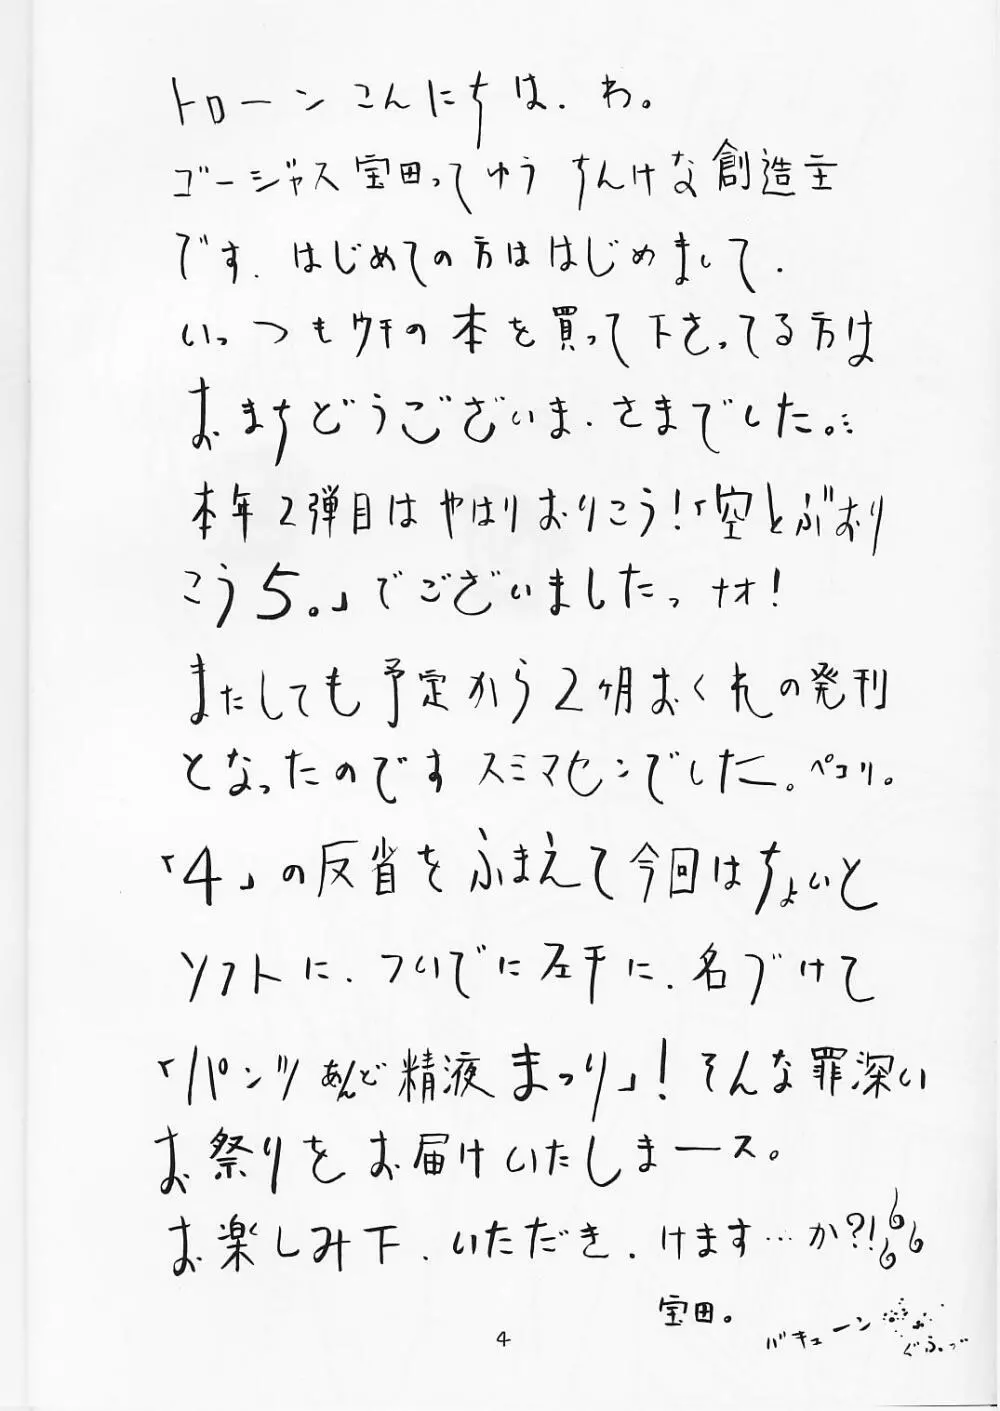 トローンこんにちは．わ。
ゴージャス宝田ってゆうちんけな創造主
です．はじめての方ははじめまして．
いっつもウチの本を買って下さってる方は
おまちどうございま．さまでした。
本年2弾目はやはりおりこう！「空とぶおり
こう5。」でございましたっナオ！
またしても予定から2ヶ月おくれの発刊
となったのですスミマセンでした。ペコリ。
「4」の反省をふまえて今回はちょいと
ソフトに．ついでに左手に．名づけて
「パンツあんど精液まつり」！そんな罪深い
お祭りをお届けいたしまース。
お楽しみ下．いただき．けます…か?!
宝田。
バキューン
ぐふっ
4